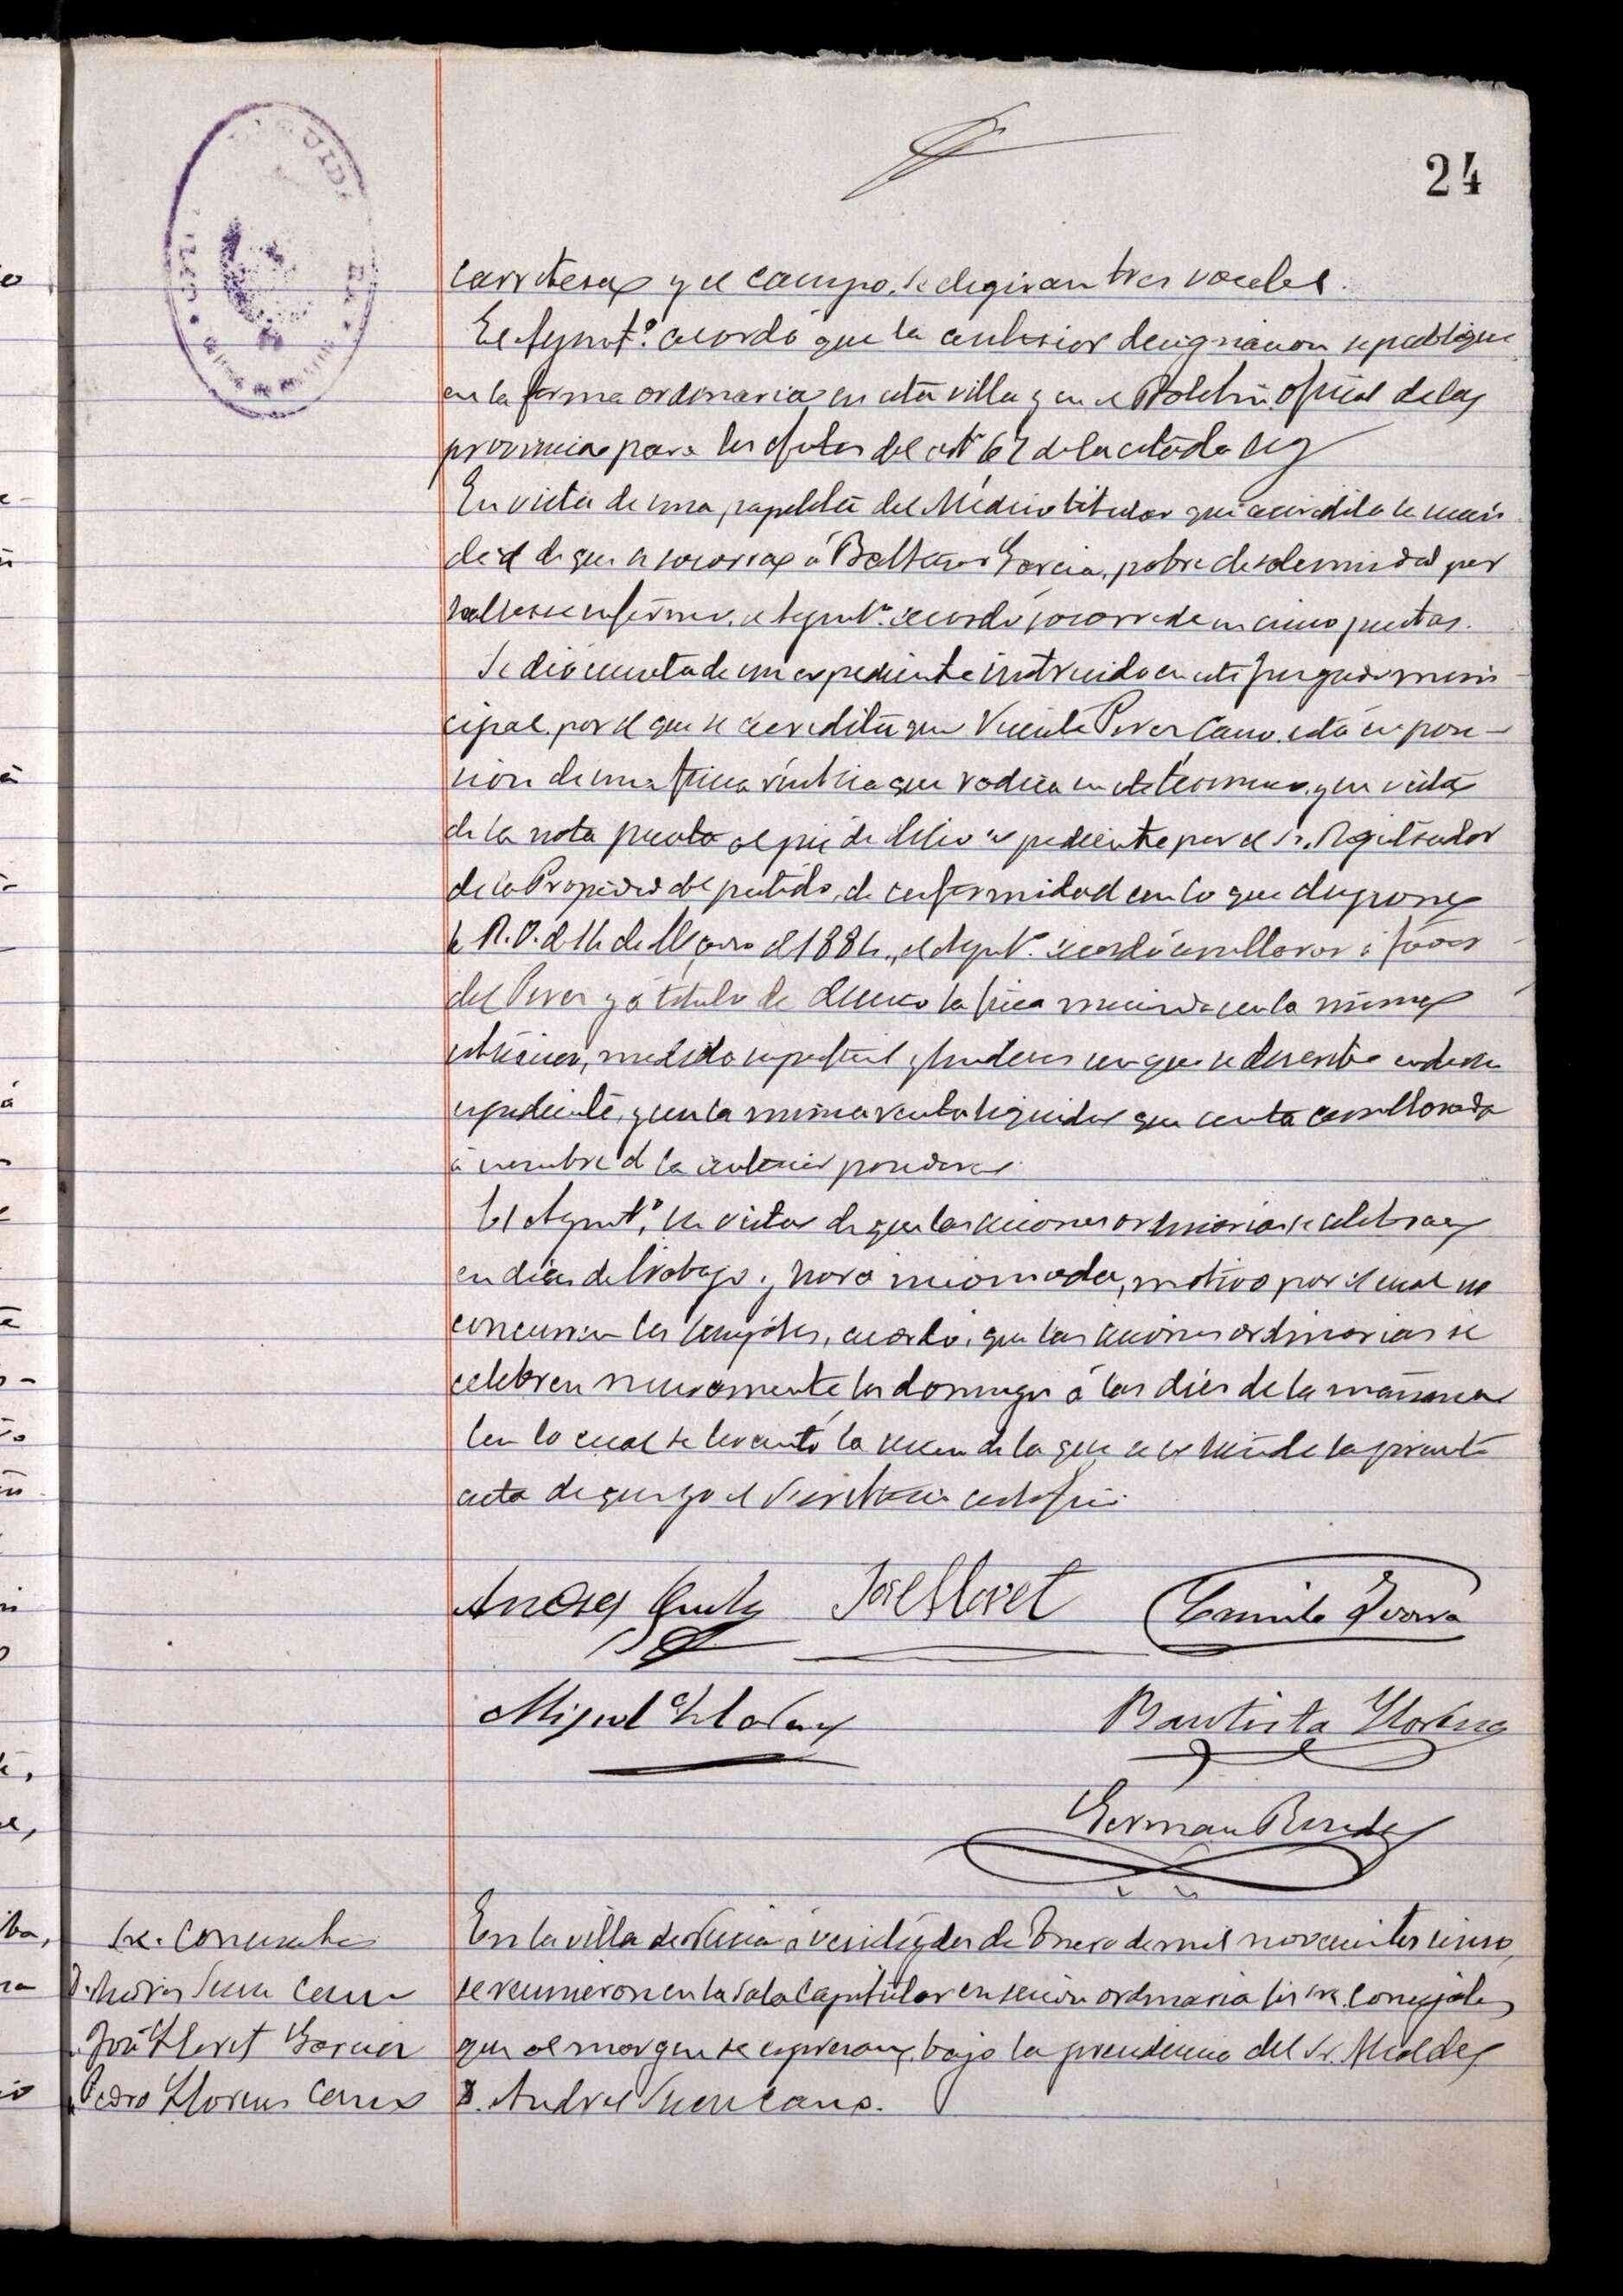 24
carretera y el campo, se elegiran tres vocales.
El Aynt.º acordó que la anterior designacion se publique
en la forma ordinaria en esta villa y en el Boletin oficial de la
provincia para los efectos del art 67 de la citada ley
En vista de una papeleta del Médico titular que acredita la necesi
dad de que se socorra á Baltasar Garcia, pobre de solemnidad por
hallarse enfermo, el Aynt.º acordó socorrerle en cinco pesetas.
Se dió cuenta de un expediente instruido en este Juzgado muni
cipal, por el que se acredita que Vicente Perez Cano está en pose-
sion de una finca rústica que radica en este término, y en vista
de la nota puesta al pié de dicho expediente por el Sr. Registrador
de la Propiedad del partido, de conformidad con lo que dispone
la R. O. de 16 de de 1884, el Aynt.º acordó amillarar á favor
del Perez y á titulo de dueño la finca en la misma
situacion, medida superficial y linderos con que se describe en dicho
expediente, y con la misma renta liquida que consta amillarada
á nombre de la anterior
El Aynt.º, en vista de que las sesiones ordinarias se celebran
en dias de trabajo y hora incomoda, motivo por el cual no
concurren los Concejales, acordó, que las sesiones ordinarias se
celebren nuevamente los domingos á las diez de la mañana
Con lo cual se levantó la sesion de la que se extiende la presente
acta de que yo el Secretario certifico.
Andres José Lloret Camilo
Miguel Bautista Llorens
German
Sres. Concurrentes
D. Andres Cano
José Lloret Garcia
Pedro Llorens Cano
En la villa de á veintidos de Enero de mil novecientos cinco,
se reunieron en la Sala Capitular en sesion ordinaria los Sres. Concejales
que al margen se expresan, bajo la presidencia del Sr. Alcalde
D. Andres Cano.